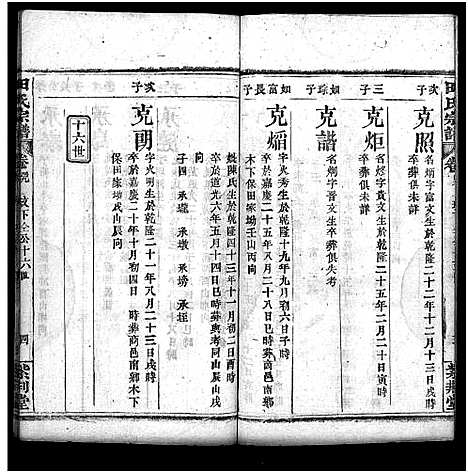 田氏宗譜
次子
克照
名炳字富文生於乾隆二十二年十二月二十日戌時
卒葬俱未詳
三子
克炬
名字貢文生於乾隆二十五年二月二十日寅時
卒葬俱未詳
如琮子
克諧
名炯字晉文生卒葬俱失考
如富長子
克熖
字火秀生於乾隆十九年九月初六日子時
卒於嘉慶二十年八月二十八日巳時葬商邑南鄉
木下田家坳壬山丙向
娶陳氏生於乾隆四十三年十一月初二日酉時
卒於道光六年五月十四日巳時葬與考同山辰山戌
子四 承 承墩 承塝 承垤
次子
克
字火明生於乾隆二十一年八月二十三日戌時
卒於嘉慶二十年十月初四日 時葬商邑南鄉木下
保田家坳戌山辰向
十六世
田氏宗譜
卷
十六世
四
紫荊堂
紫荊堂